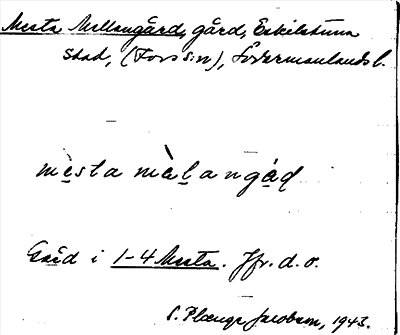 Mesta Mellangård, gård, Eskilstuna
stad, (Fors s:n), Södermanlands l.
mèsta màlangåd
Gård i 1-4 Mesta. Jfr. d. o.
S. Plœnge Jacobson, 1943.